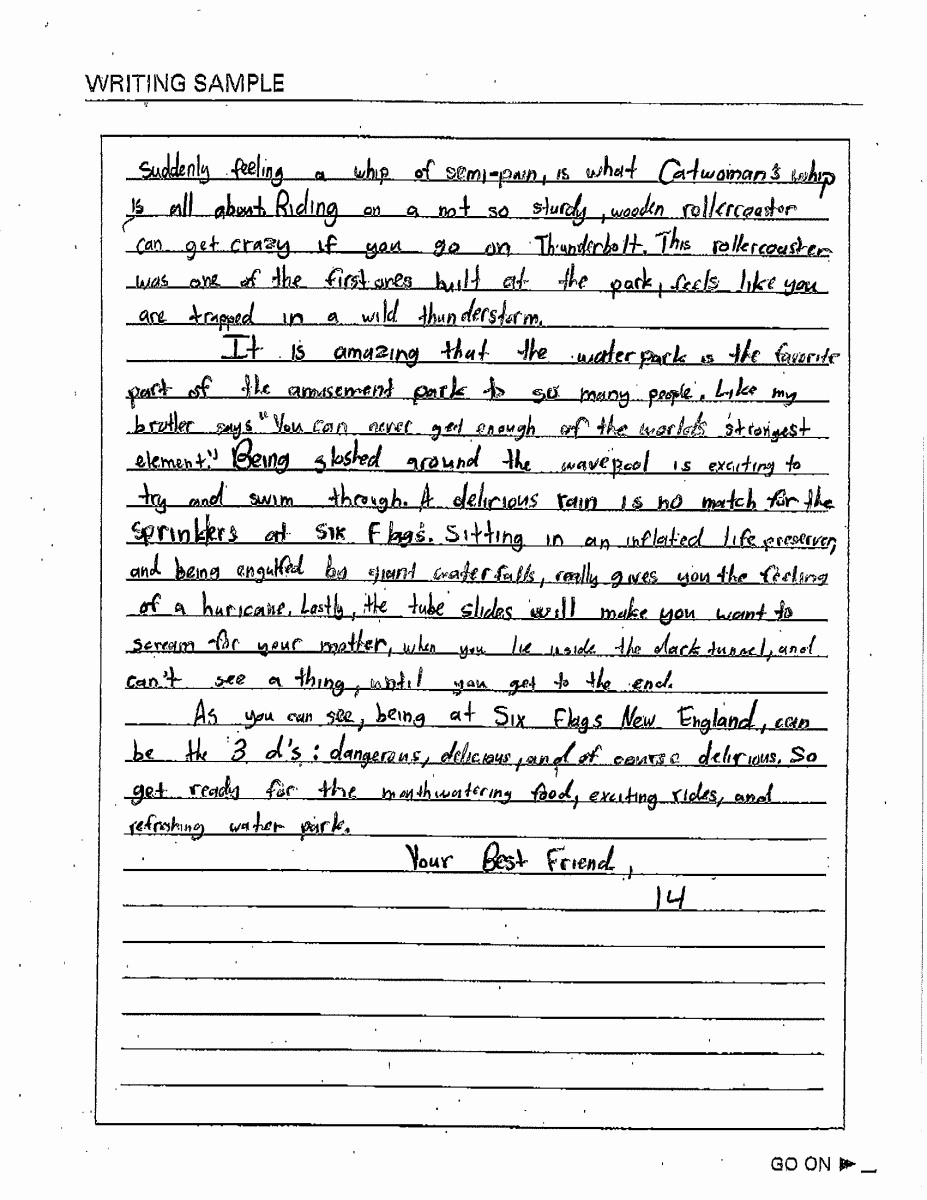 WRITING SAMPLE
Suddenly feeling a whip of semi-pain, is what Catwoman's whip
is all about. Riding on a not so sturdy, wooden rollercoaster
can get crazy if you go on Thunderbolt. This rollercoaster
was one of the first ones built at the park, feels like you
are trapped in a wild thunderstorm.
It is amazing that the water park is the favorite
part of the amusement park to so many people. Like my
brother says "You can never get enough of the world's strongest
element." Being sloshed around the wavepool is exciting to
try and swim through. A delirious rain is no match for the
sprinklers at Six Flags. Sitting in an inflated life preserver,
and being engulfed by giant waterfalls, really gives you the feeling
of a huricane. Lastly, the tube slides will make you want to
scream for your mother, when you lie inside the dark tunnel, and
can't see a thing, until you get to the end.
As you can see, being at Six Flags New England, can
be the 3 d's: dangerous, delicious, and of course delirious. So
get ready for the mouthwatering food, exciting rides, and
refreshing water park.
Your Best Friend,
14
GO ON